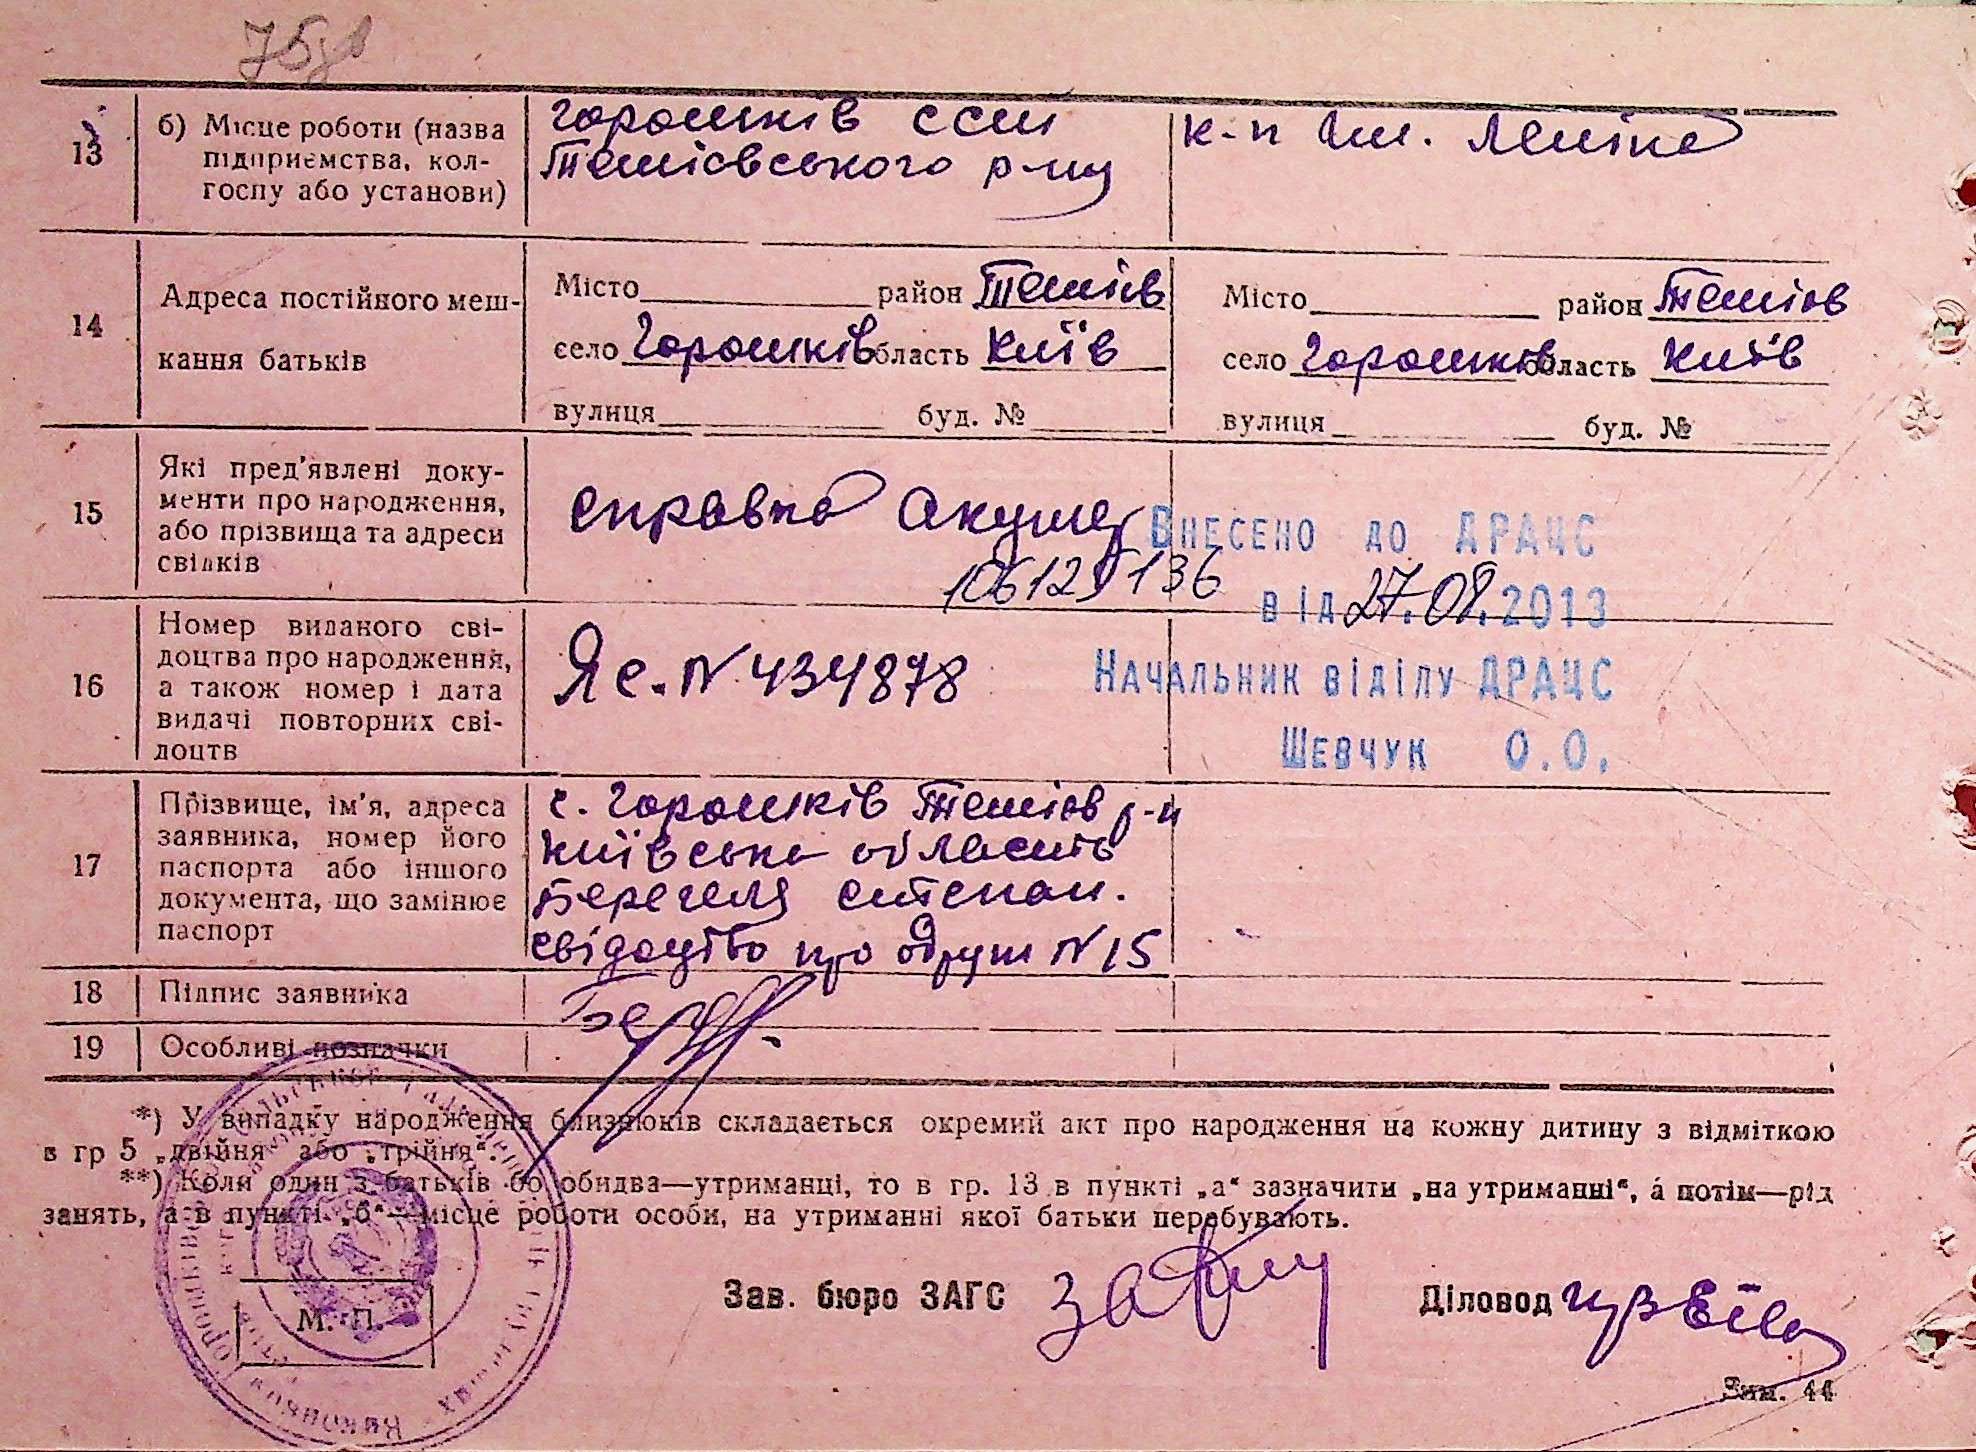 75зв
13
б) Місце роботи (назва
підприємства, кол-
госпу або установи)
Горошків ССМ
Тетієвського р-ну
к-п Ім. Леніна
14
Адреса постійного меш-
кання батьків
Місто район Тетіїв
село Горошків область Київ
вулиця буд. №
Місто район Тетіїв
село Горошків область Київ
вулиця буд. №
15
Які пред'явлені доку-
менти про народження,
або прізвища та адреси
свідків
справка Акушер
106129136
Внесено до ДРАЦС
від 27.08.2013
Начальник відділу ДРАЦС
Шевчук О.О.
16
Номер виданого сві-
доцтва про народження,
а також номер і дата
видачі повторних сві-
доцтв
Яс. N 434878
17
Прізвище, ім'я, адреса
заявника, номер його
паспорта або іншого
документа, що замінює
паспорт
с. Горошків Тетіїв р-н
Київська область
Берегеля Степан.
свідоцтво про одруж N 15
18
Підпис заявника
19
Особливі позначки
*) У випадку народження близнюків складається окремий акт про народження на кожну дитину з відміткою
в гр 5 „двійня“ або „трійня“.
**) Коли один з батьків бо обидва—утриманці, то в гр. 13 в пункті „а“ зазначити „на утриманні“, а потім—рід
занять, а в пункті „б“—місце роботи особи, на утриманні якої батьки перебувають.
М. П.
Зав. бюро ЗАГС
Діловод
Зам. 44